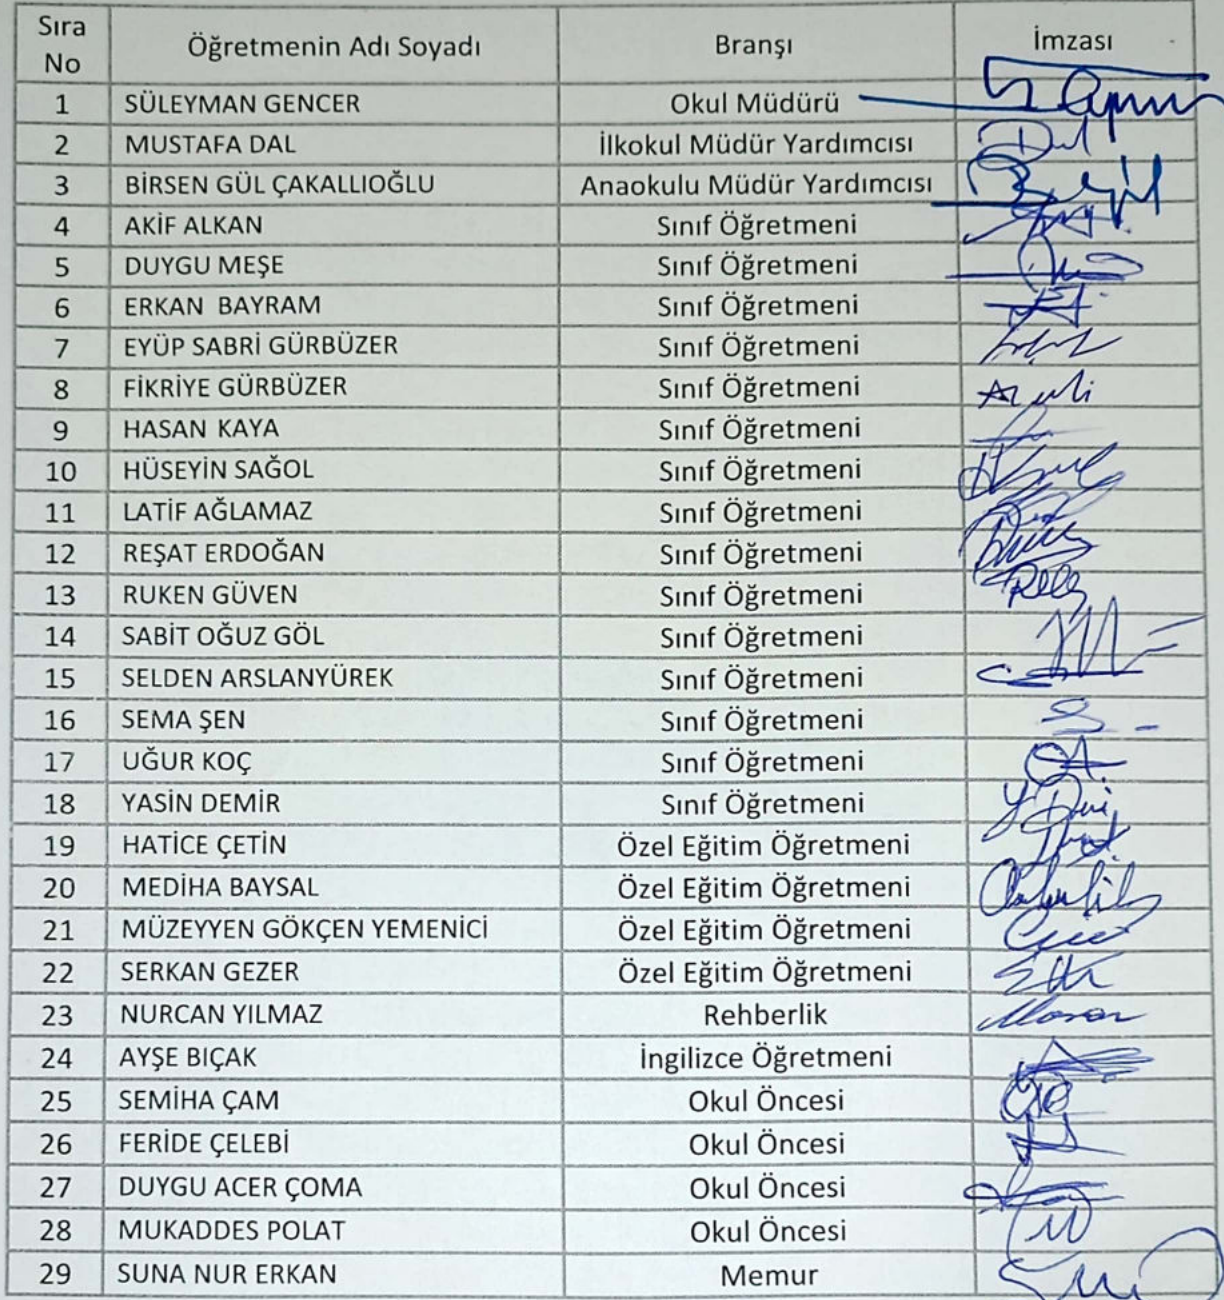 Sıra No Öğretmenin Adı Soyadı Branşı İmzası
1 SÜLEYMAN GENCER Okul Müdürü
2 MUSTAFA DAL İlkokul Müdür Yardımcısı
3 BİRSEN GÜL ÇAKALLIOĞLU Anaokulu Müdür Yardımcısı
4 AKİF ALKAN Sınıf Öğretmeni
5 DUYGU MEŞE Sınıf Öğretmeni
6 ERKAN BAYRAM Sınıf Öğretmeni
7 EYÜP SABRİ GÜRBÜZER Sınıf Öğretmeni
8 FİKRİYE GÜRBÜZER Sınıf Öğretmeni
9 HASAN KAYA Sınıf Öğretmeni
10 HÜSEYİN SAĞOL Sınıf Öğretmeni
11 LATİF AĞLAMAZ Sınıf Öğretmeni
12 REŞAT ERDOĞAN Sınıf Öğretmeni
13 RUKEN GÜVEN Sınıf Öğretmeni
14 SABİT OĞUZ GÖL Sınıf Öğretmeni
15 SELDEN ARSLANYÜREK Sınıf Öğretmeni
16 SEMA ŞEN Sınıf Öğretmeni
17 UĞUR KOÇ Sınıf Öğretmeni
18 YASİN DEMİR Sınıf Öğretmeni
19 HATİCE ÇETİN Özel Eğitim Öğretmeni
20 MEDİHA BAYSAL Özel Eğitim Öğretmeni
21 MÜZEYYEN GÖKÇEN YEMENİCİ Özel Eğitim Öğretmeni
22 SERKAN GEZER Özel Eğitim Öğretmeni
23 NURCAN YILMAZ Rehberlik
24 AYŞE BIÇAK İngilizce Öğretmeni
25 SEMİHA ÇAM Okul Öncesi
26 FERİDE ÇELEBİ Okul Öncesi
27 DUYGU ACER ÇOMA Okul Öncesi
28 MUKADDES POLAT Okul Öncesi
29 SUNA NUR ERKAN Memur